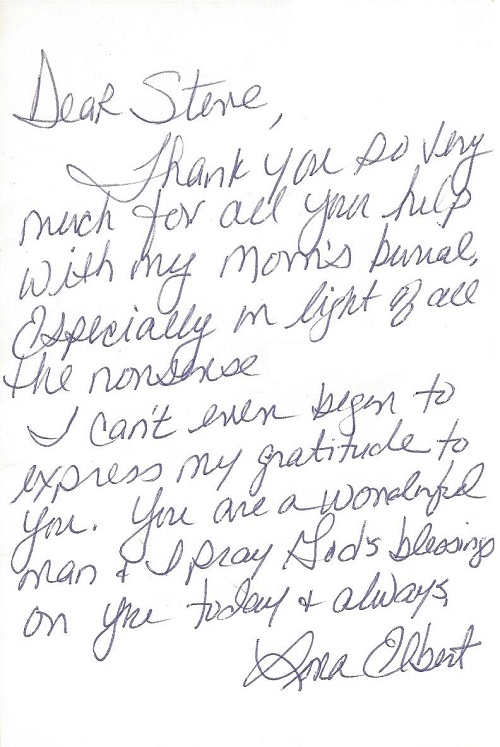 Dear Steve,
Thank you so very
much for all your help
with my Mom's burial,
Especially in light of all
the nonsense
I can't even begin to
express my gratitude to
you. You are a wonderful
man & I pray God's blessings
on you today & always
Elbert